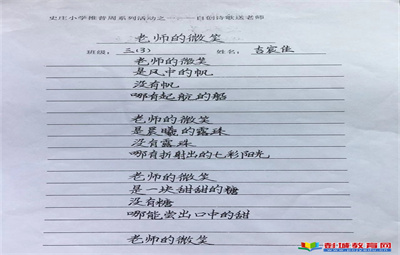 史庄小学推普周系列活动之一——自创诗歌送老师
老师的微笑
班级：三(3) 姓名：吉宸佳
老师的微笑
是风中的帆
没有帆
哪有起航的船
老师的微笑
是晨曦的露珠
没有露珠
哪有折射出的七彩阳光
老师的微笑
是一块甜甜的糖
没有糖
哪能尝出口中的甜
老师的微笑
彭城教育网